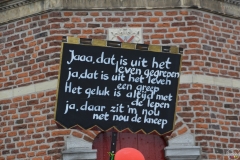 Jaaa, dat is uit het
leven gegrepen
ja, dat is uit het leven
een greep
Het geluk is altijd met
de lepen
ja, daar zit 'm nou
net nou de kneep